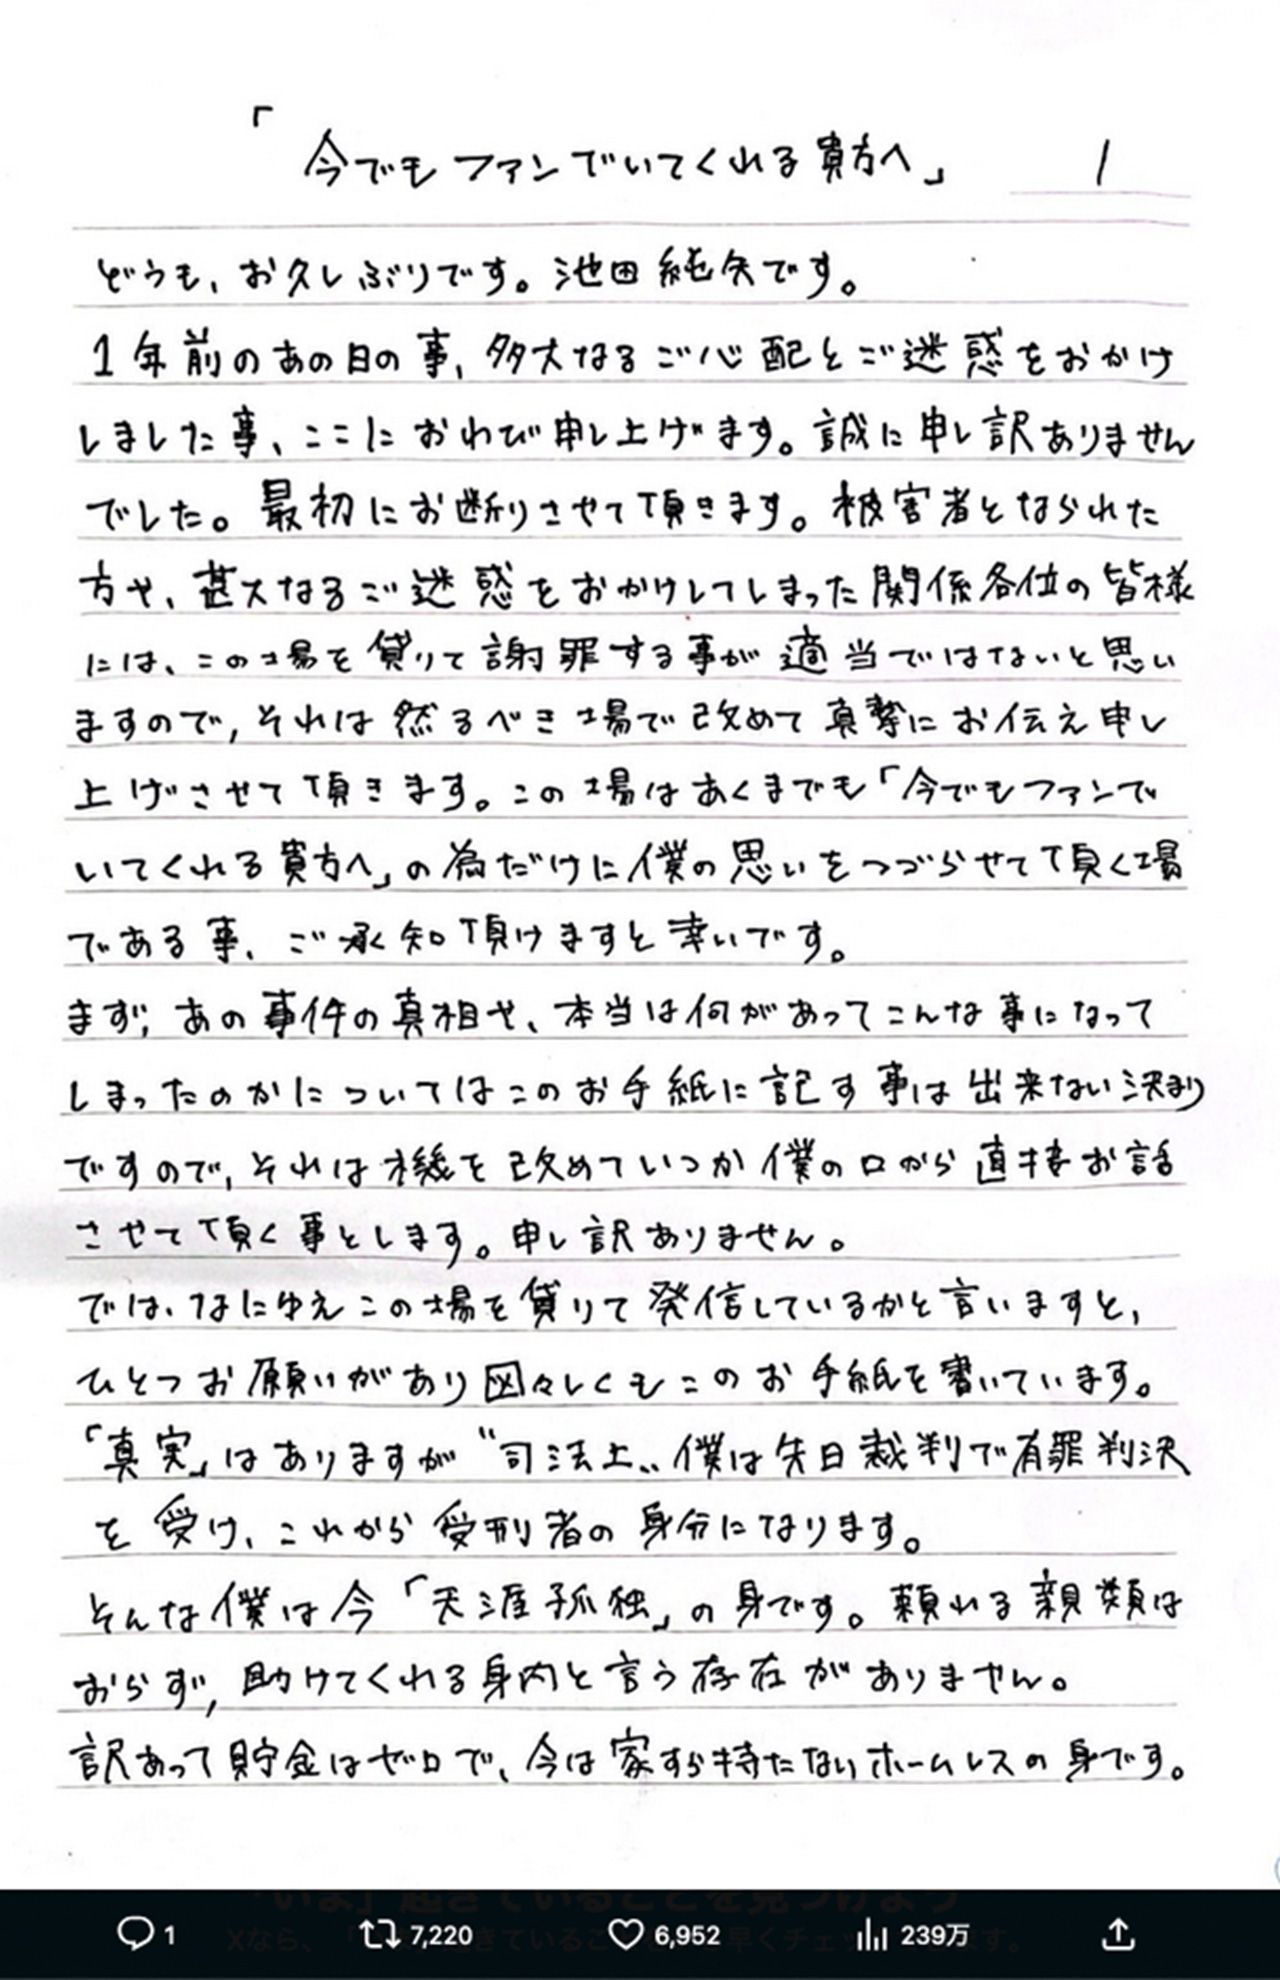 「今でもファンでいてくれる貴方へ」 1
どうも、お久しぶりです。池田純矢です。
1年前のあの日の事、多大なるご心配とご迷惑をおかけ
しました事、ここにおわび申し上げます。誠に申し訳ありません
でした。最初にお断りさせて頂きます。被害者となられた
方や、甚大なるご迷惑をおかけしてしまった関係各位の皆様
には、この場を貸りて謝罪する事が適当ではないと思い
ますので、それは然るべき場で改めて真摯にお伝え申し
上げさせて頂きます。この場はあくまでも「今でもファンで
いてくれる貴方へ」の為だけに僕の思いをつづらせて頂く場
である事、ご承知頂けますと幸いです。
まず、あの事件の真相や、本当は何があってこんな事になって
しまったのかについてはこのお手紙に記す事は出来ない決まり
ですので、それは機を改めていつか僕の口から直接お話
させて頂く事とします。申し訳ありません。
では、なにゆえこの場を貸りて発信しているかと言いますと、
ひとつお願いがあり図々しくもこのお手紙を書いています。
「真実」はありますが〝司法上〟僕は先日裁判で有罪判決
を受け、これから受刑者の身分になります。
そんな僕は今「天涯孤独」の身です。頼れる親類は
おらず、助けてくれる身内と言う存在がありません。
訳あって貯金はゼロで、今は家すら持たないホームレスの身です。
1 7,220 6,952 239万